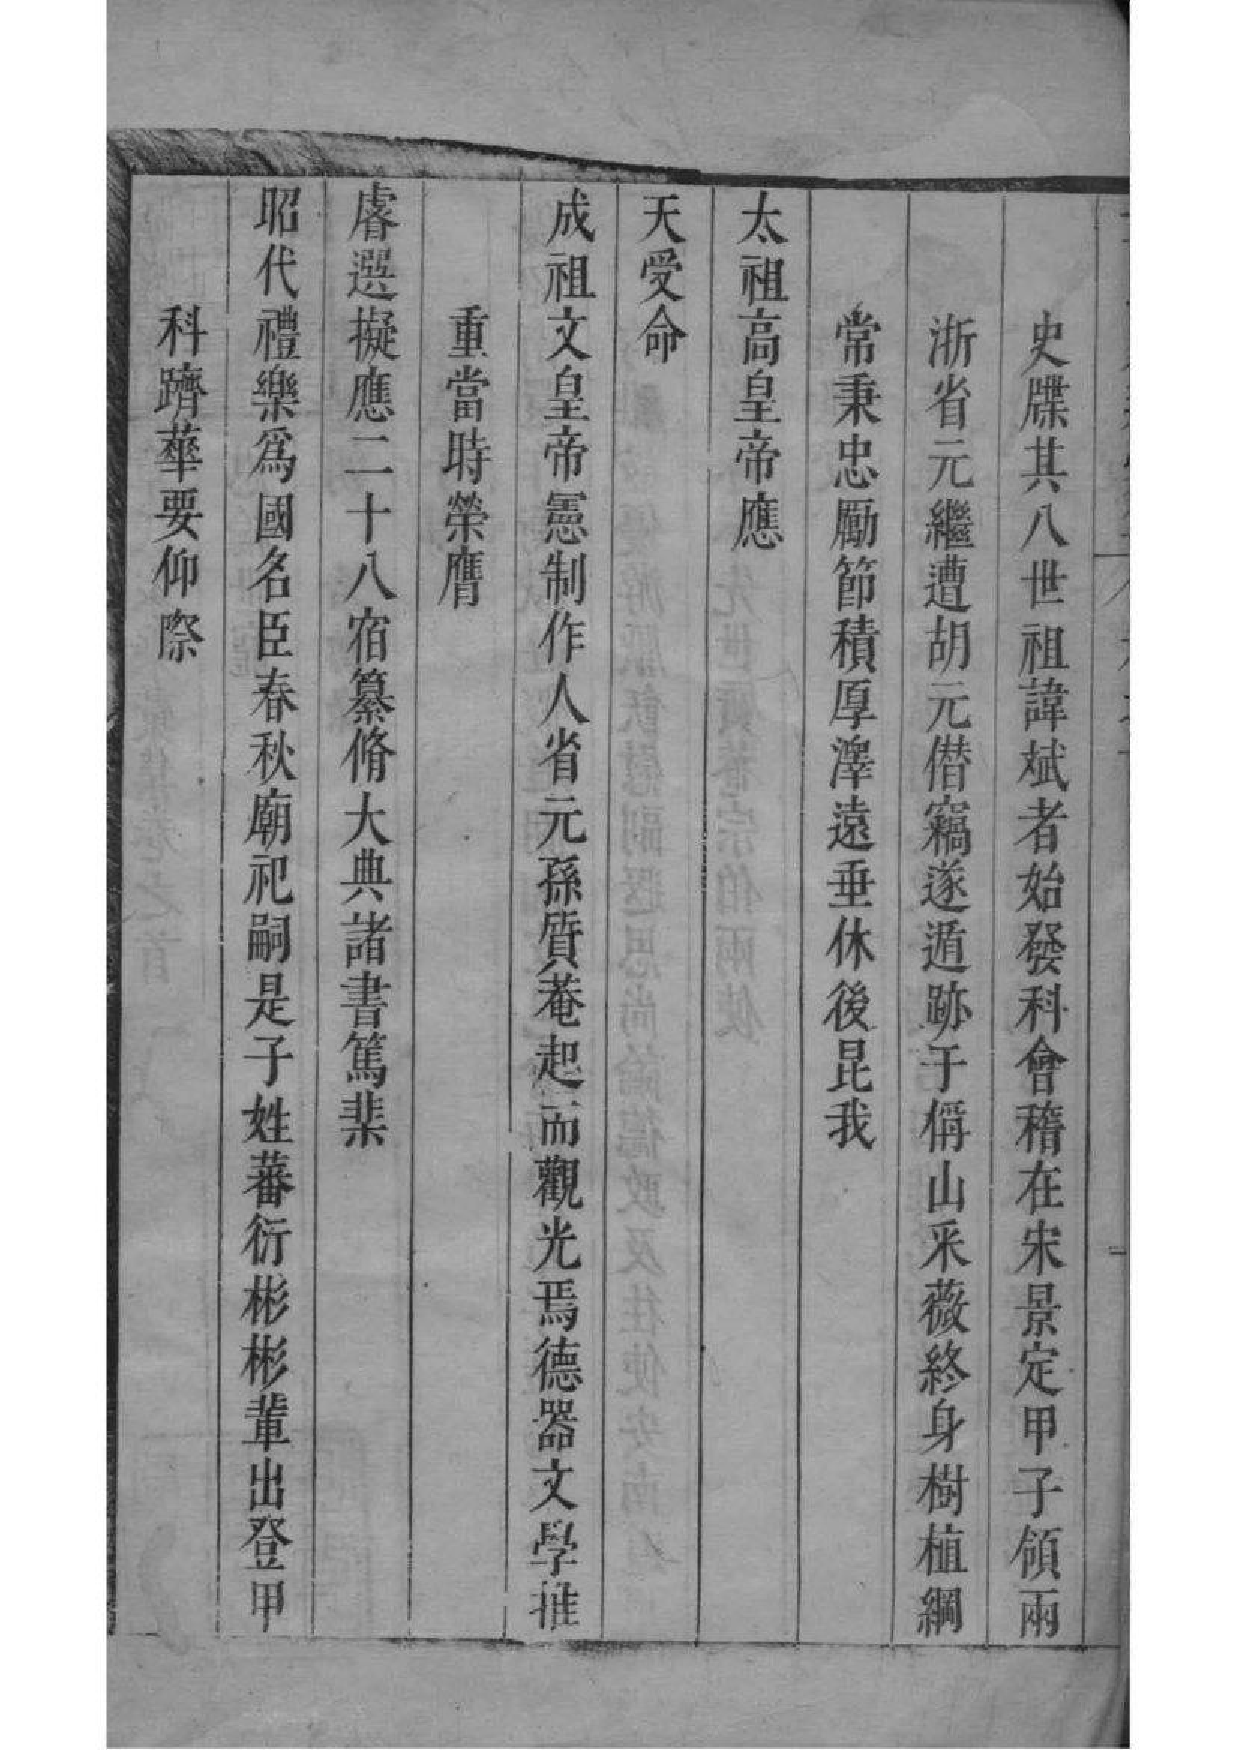 史牒其八世祖諱斌者始發科會稽在宋景定甲子領兩
浙省元繼遭胡元僣竊遂遁跡于偁山采薇終身樹植綱
常秉忠勵節積厚澤遠垂休後昆我
太祖高皇帝應
天受命
成祖文皇帝憲制作人省元孫質菴起而觀光焉德器文學推
重當時榮膺
睿選擬應二十八宿纂脩大典諸書篤棐
昭代禮樂爲國名臣春秋廟祀嗣是子姓蕃衍彬彬輩出登甲
科躋華要仰際